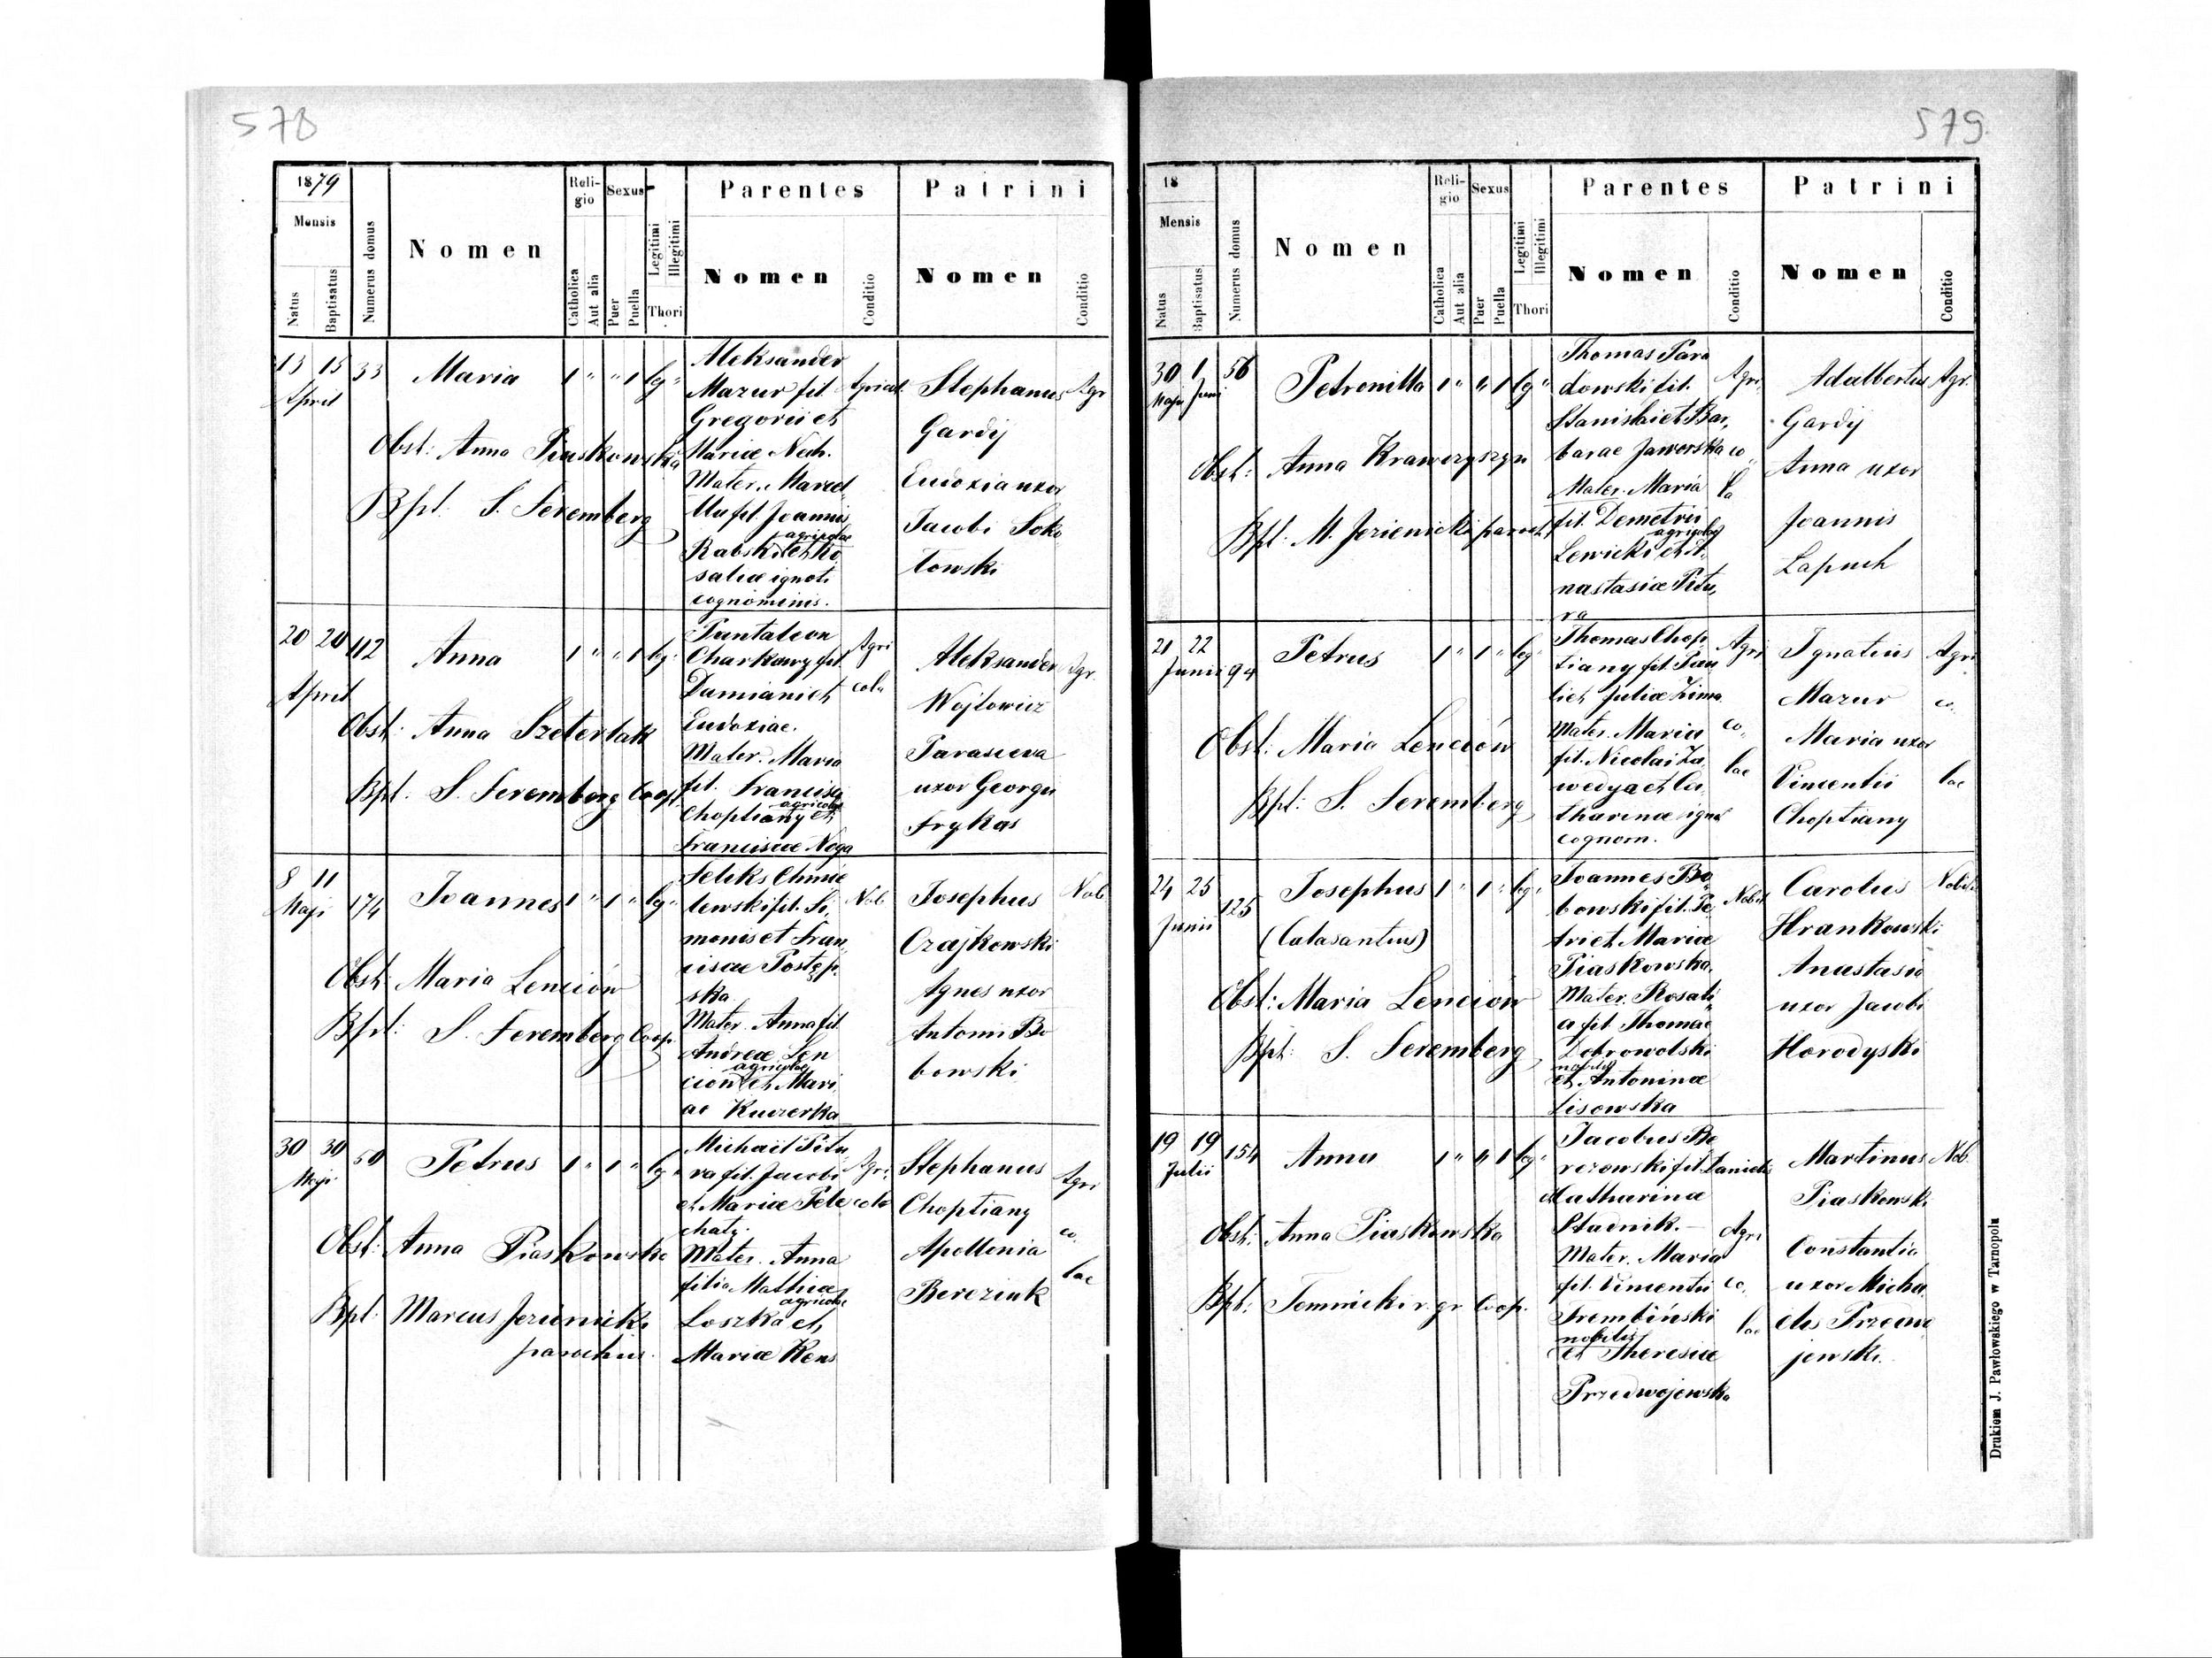 578
1879
Mensis
Natus
Baptisatus
Numerus domus
Nomen
Religio
Catholica
Aut alia
Sexus
Puer
Puella
Legitimi
Illegitimi
Thori
Parentes
Nomen
Conditio
Patrini
Nomen
Conditio
13 15
April
33
Maria
1 " " 1 lg"
Obst: Anna Piaskowska
Bpt: S. Feremberg
Aleksander
Mazur fil.
Gregorii et
Mariae Nech.
Mater. Marcel
lla fil. Joannis
agricolae
Rabski et Ro
saliae ignoti
cognominis.
Agricol.
Stephanus
Gardij
Eudoxia uxor
Jacobi Soko
łowski
Agr
20 20
April
112
Anna
1 " " 1 lg.
Obst: Anna Szeterlak
Bpt. S. Feremberg Coop.
Pantaleon
Charkawy fil.
Damiani et
Eudoxiae.
Mater. Maria
fil. Francisci
agricolae
Choptiany et
Franciscae Noga
Agri
cola
Aleksander
Wojtowicz
Parasceva
uxor Georgii
Frykas
Agr.
8 11
Maji
174
Joannes
1 " 1 " lg"
Obst: Maria Lenciów
Bpt: S. Feremberg Coop.
Feliks Chmie
lewski fil. Si,
monis et Fran,
ciscae Postęp,
ska
Mater. Anna fil.
Andreae Len
agricolae
ciów et Mari
ae Kuczerka
Nob
Josephus
Czajkowski
Agnes uxor
Antonii Bo
bowski
Nob
30 30
Maji
50
Petrus
1 " 1 " lg"
Obst: Anna Piaskowska
Bpt: Marcus Jezienicki
parochus.
Michael Pitu,
ra fil. Jacobi
et Mariae Pele
chaty.
Mater. Anna
filia Mathiae
agricolae
Loszka et
Mariae Kens
Agri
cola
Stephanus
Choptiany
Apollonia
Bereziuk
Agri
co,
lae
579
18
Mensis
Natus
Baptisatus
Numerus domus
Nomen
Religio
Catholica
Aut alia
Sexus
Puer
Puella
Legitimi
Illegitimi
Thori
Parentes
Nomen
Conditio
Patrini
Nomen
Conditio
30 1
Maji Juni
56
Petronilla
1 " " 1 lg"
Obst: Anna Krawczyszyn
Bpt: M. Jezienicki paroch,
Thomas Para
dowski fil.
Stanislai et Bar,
barae Jaworska
Mater. Maria
fil. Demetrii
agricolae
Lewicki et A,
nastasiae Pitu,
ra
Agri,
co,
la
Adalbertus
Gardij
Anna uxor
Joannis
Lapuch
Agr.
21 22
Junii
94
Petrus
1 " 1 " lg"
Obst: Maria Lenciów
Bpt: S. Feremberg
Thomas Chop,
tiany fil. Pau
li et Juliae Zima
Mater. Maria
fil. Nicolai Za,
wedya et Ca,
tharinae ignot
cognom.
Agri
co,
lae
Ignatius
Mazur
Maria uxor
Vincentii
Choptiany
Agri
co.
lae
24 25
Junii
125
Josephus
(Calasantius)
1 " 1 " lg.
Obst: Maria Lenciów
Bpt: S. Feremberg
Joannes Bo
bowski fil. Pe,
tri et Mariae
Piaskowska.
Mater. Rosali,
a fil. Thomae
Dobrowolski
nobilis
et Antoninae
Lisowska
Nobil
Carolus
Hrankowski
Anastasia
uxor Jacobi
Horodyski
Nobiles
19 19
Julii
154
Anna
1 " " 1 lg"
Obst: Anna Piaskowska
Bpt: r. gr. Coop.
Jacobus Be
rezowski fil. Danielis
et Catharinae
Stadnik.
Mater. Maria
fil. Vincentii
Trembiński
nobilis
et Theresiae
Przedwojewska
Agri
co,
lae
Martinus
Piaskowski
Constantia
uxor Micha,
elis Przedwo
jewski.
Nob.
Drukiem J. Pawłowskiego w Tarnopolu